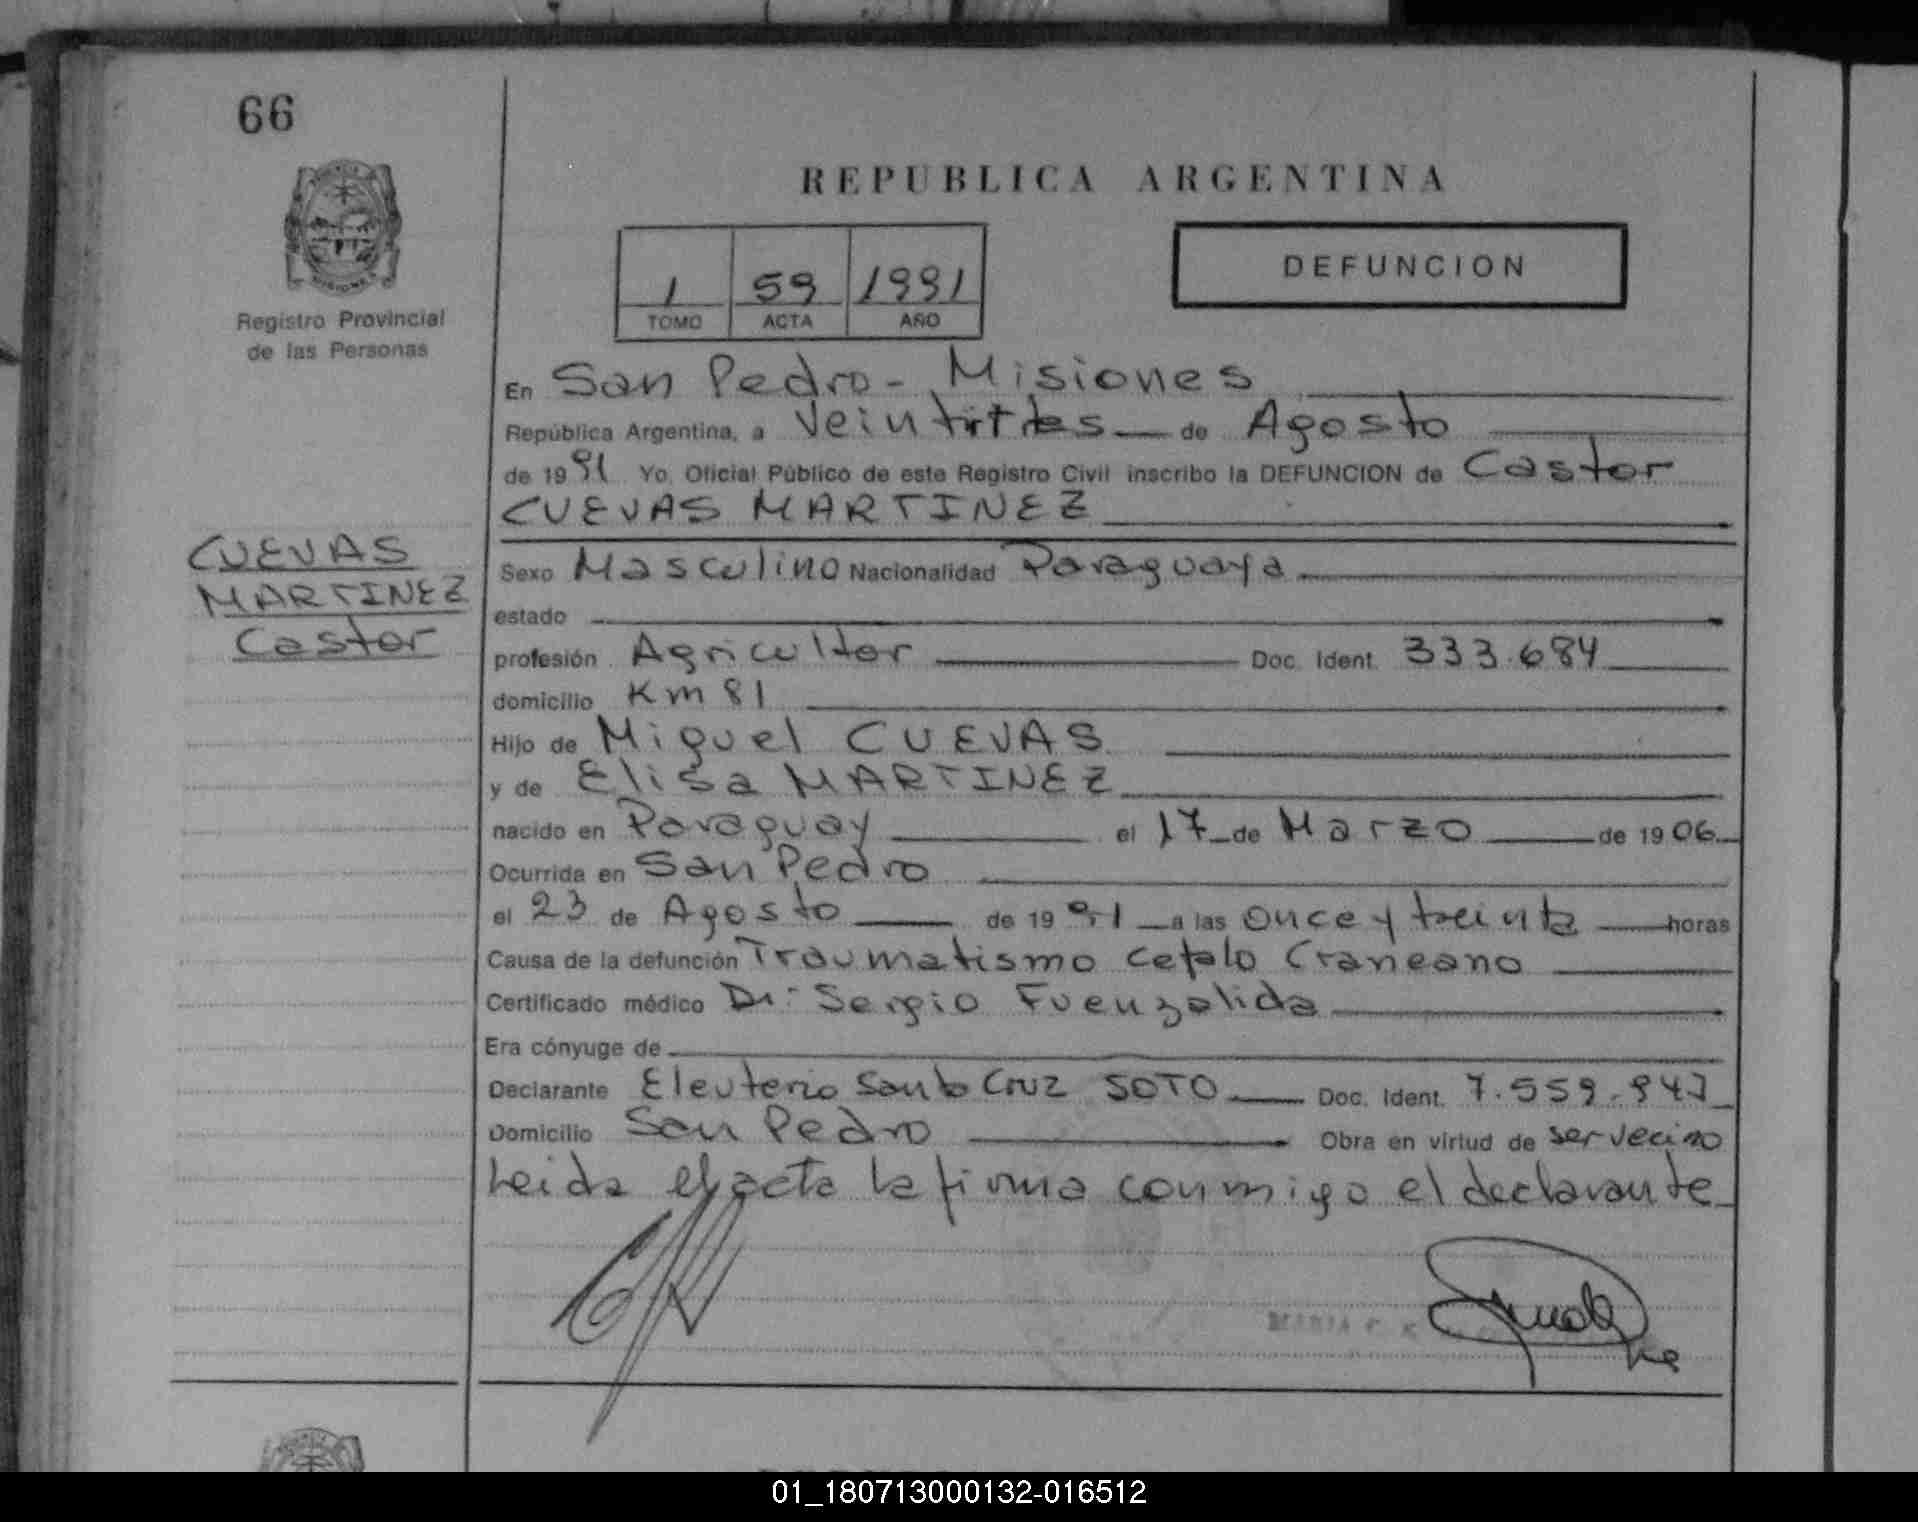 66
REPUBLICA ARGENTINA
1 59 1991
TOMO ACTA AÑO
DEFUNCION
Registro Provincial
de las Personas
En San Pedro - Misiones
República Argentina, a Veintitres de Agosto
de 1991 Yo, Oficial Público de este Registro Civil inscribo la DEFUNCION de Castor
CUEVAS MARTINEZ
CUEVAS
MARTINEZ
Castor
Sexo Masculino Nacionalidad Paraguaya
estado
profesión Agricultor Doc. Ident. 333.684
domicilio Km 81
Hijo de Miguel CUEVAS
y de Elisa MARTINEZ
nacido en Paraguay el 17 de Marzo de 1906
Ocurrida en San Pedro
el 23 de Agosto de 1991 a las once y treinta horas
Causa de la defunción Traumatismo Cefalo Craneano
Certificado médico Dr. Sergio Fuenzalida
Era cónyuge de
Declarante Eleuterio Santa Cruz SOTO Doc. Ident. 7.559.947
Domicilio San Pedro Obra en virtud de ser vecino
Leida el acta la firma conmigo el declarante
MARIA C. K
01_180713000132-016512